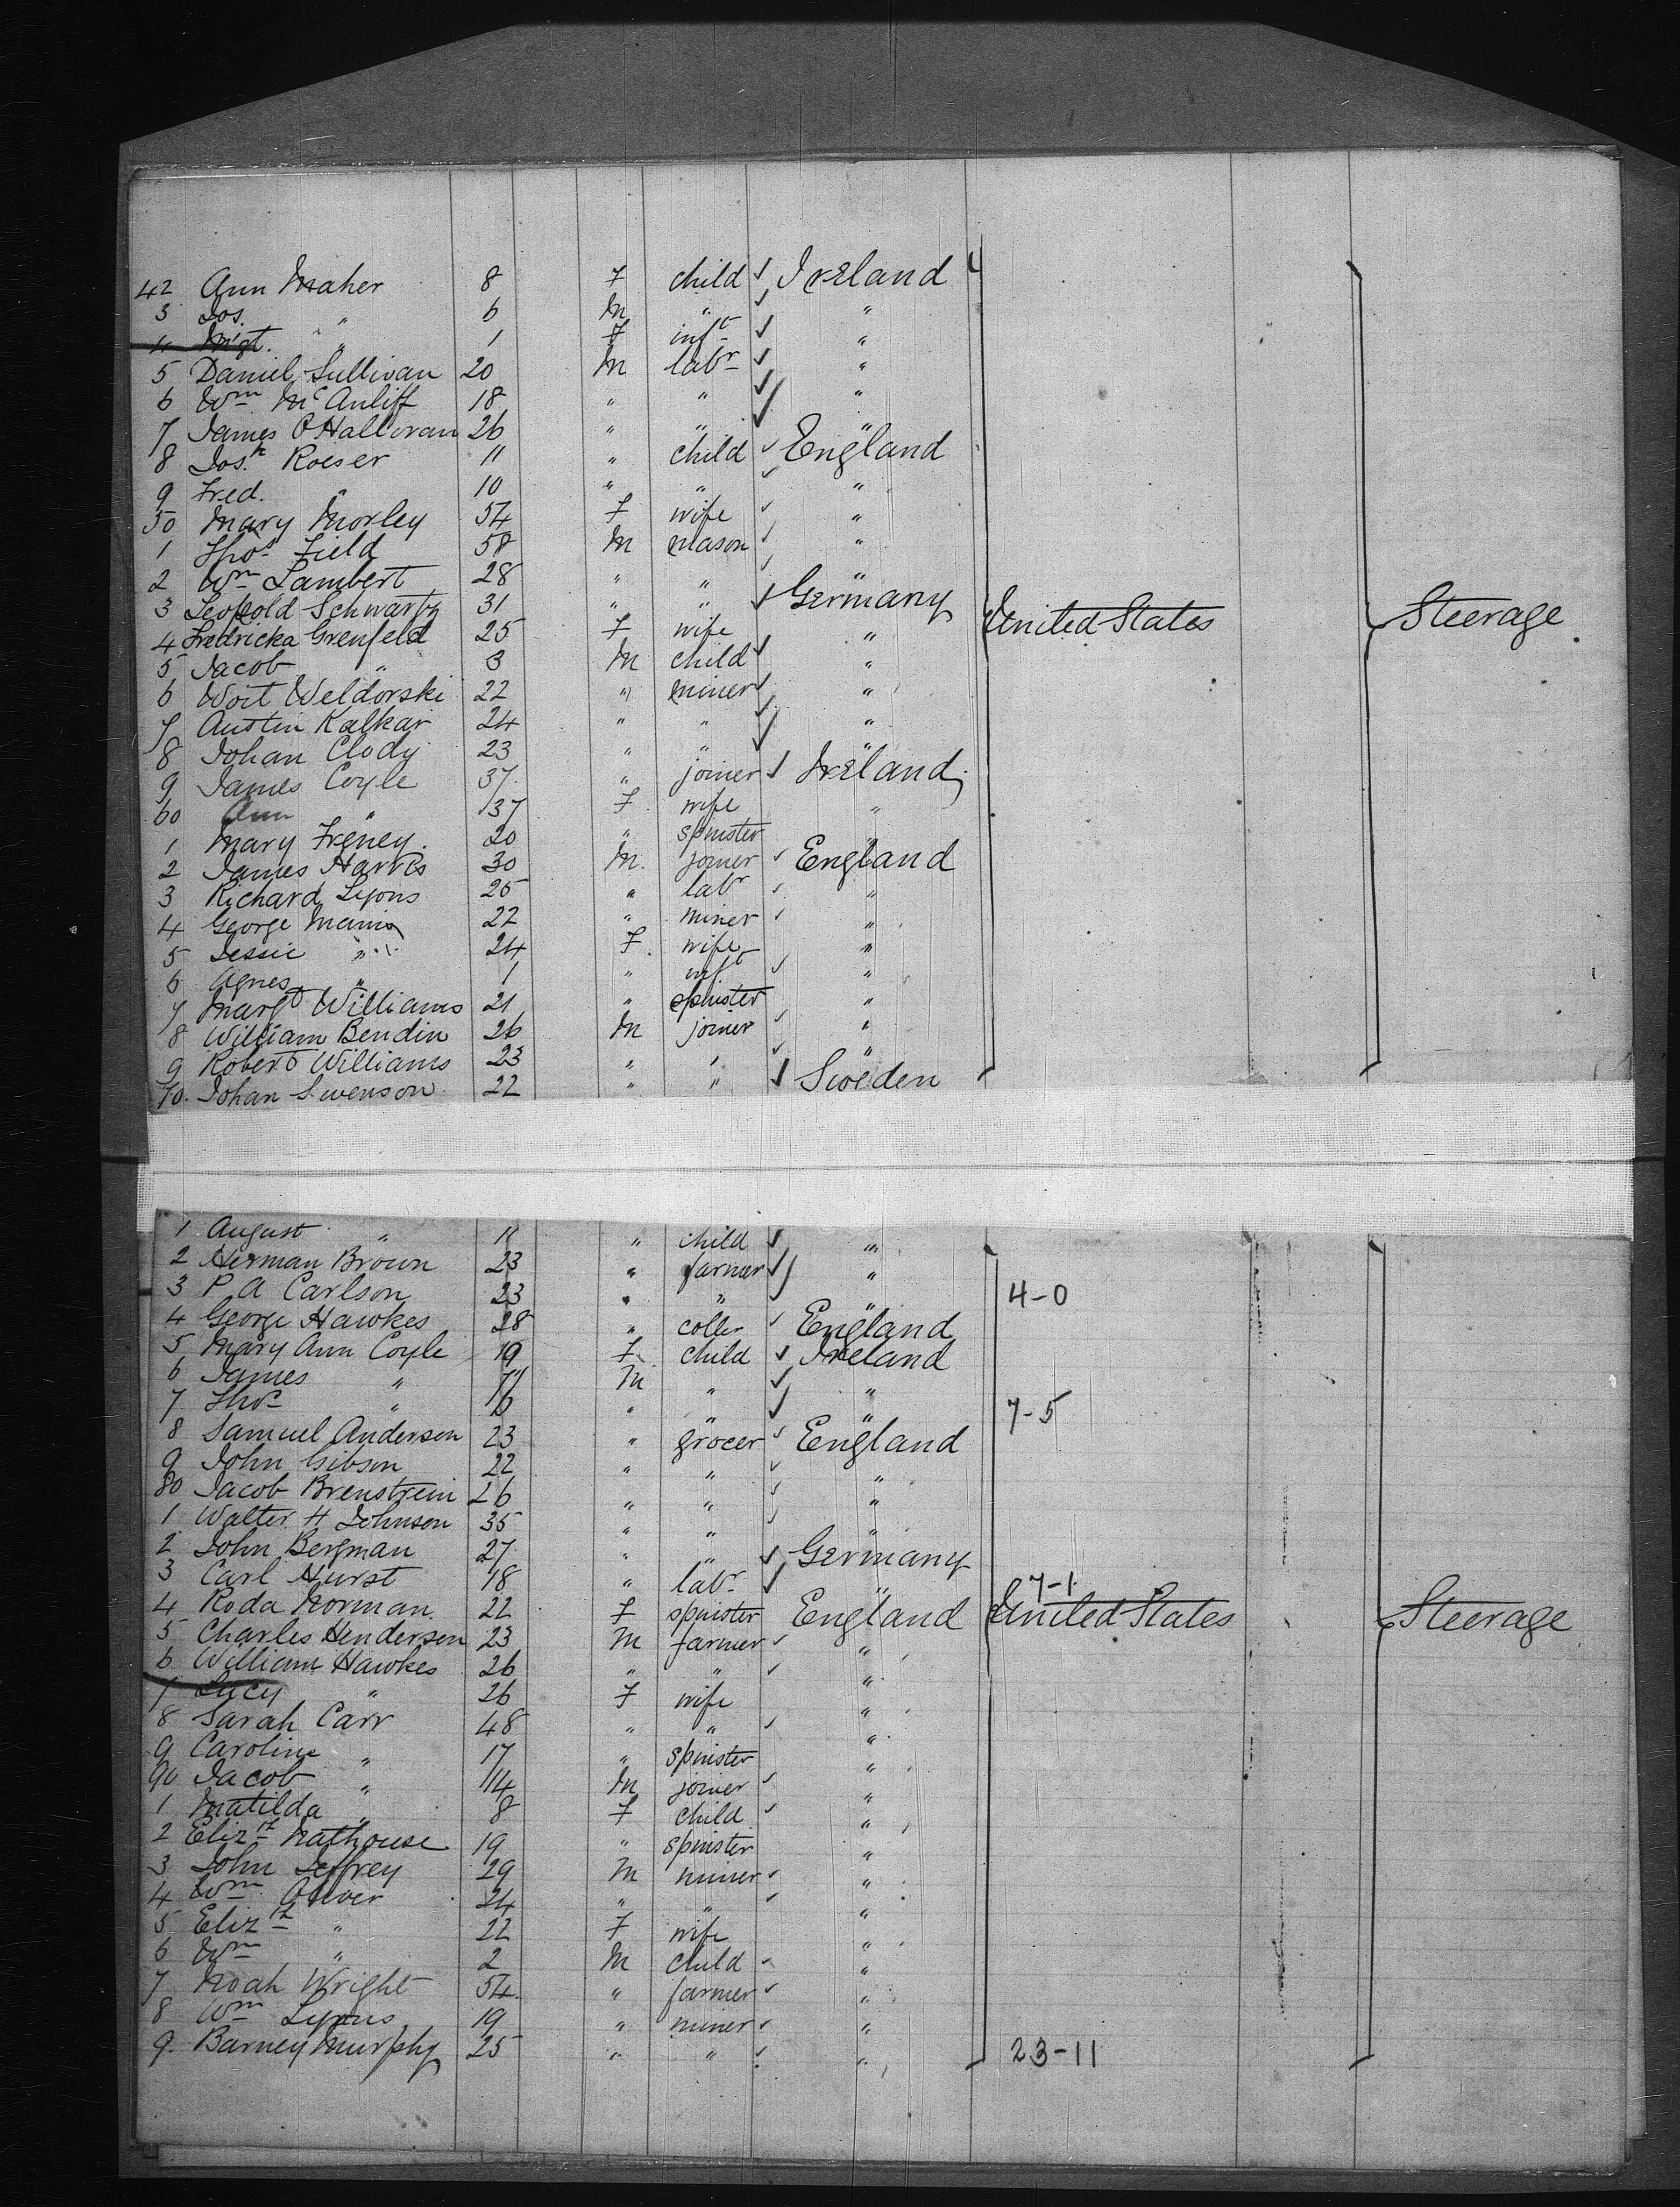 42 Ann Maher 8 F child ✓ Ireland
3 Jos. " 6 M " ✓ "
4 Mgt. " 1 F inft ✓ "
5 Daniel Sullivan 20 M labr ✓ "
6 Wm McAuliff 18 " " ✓ "
7 James O'Halloran 26 " " ✓ "
8 Josh Roeser 11 " child ✓ England
9 Fred. " 10 " " ✓ "
50 Mary Morley 54 F wife ✓ "
1 Thos Field 58 M mason ✓ "
2 Wm Lambert 28 " " ✓ "
3 Leopold Schwartz 31 " " ✓ Germany United States Steerage
4 Fredricka Grenfeld 25 F wife "
5 Jacob " 3 M child ✓ "
6 Woit Weldorski 22 " miner ✓ "
7 Austin Kalkar 24 " " ✓ "
8 Johan Clody 23 " " ✓ "
9 James Coyle 37 " joiner ✓ Ireland
60 Ann " 37 F wife "
1 Mary Freney 20 " spinster "
2 James Harris 30 M. joiner ✓ England
3 Richard Lyons 25 " labr ✓ "
4 George 22 " miner ✓ "
5 Jessie " 24 F. wife "
6 Agnes " 1 " inft ✓ "
7 Margt Williams 21 " spinster "
8 William Bendin 26 M joiner ✓ "
9 Robert Williams 23 " " ✓ "
70. Johan Swenson 22 " " ✓ Sweden
1 August " 11 " child ✓ "
2 Herman Brown 23 " farmer ✓ "
3 P A Carlson 23 " " ✓ " 4-0
4 George Hawkes 28 " coller ✓ England
5 Mary Ann Coyle 19 F. child ✓ Ireland
6 James " M " ✓ "
7 Thos " " " ✓ " 7-5
8 Samuel Anderson 23 " grocer ✓ England
9 John Gibson 22 " " ✓ "
80 Jacob Brenstrein 26 " " ✓ "
1 Walter H Johnson 35 " " ✓ "
2 John Bergman 27 " " ✓ Germany
3 Carl Hurst 18 " labr ✓ " 7-1
4 Roda Norman 22 F spinster England United States Steerage
5 Charles Henderson 23 M farmer ✓ "
6 William Hawkes 26 " " ✓ "
7 Lucy " 26 F wife "
8 Sarah Carr 48 " " ✓ "
9 Caroline " 17 " spinster "
90 Jacob " 14 M joiner ✓ "
1 Matilda " 8 F child ✓ "
2 Elizth Nathouse 19 " spinster "
3 John Jeffrey 29 M miner ✓ "
4 Wm Oliver 24 " " ✓ "
5 Elizth " 22 F wife "
6 Wm " 2 M child ✓ "
7 Noah Wright 54 " farmer ✓ "
8 Wm Lyons 19 " miner ✓ "
9. Barney Murphy 25 " " ✓ " 23-11